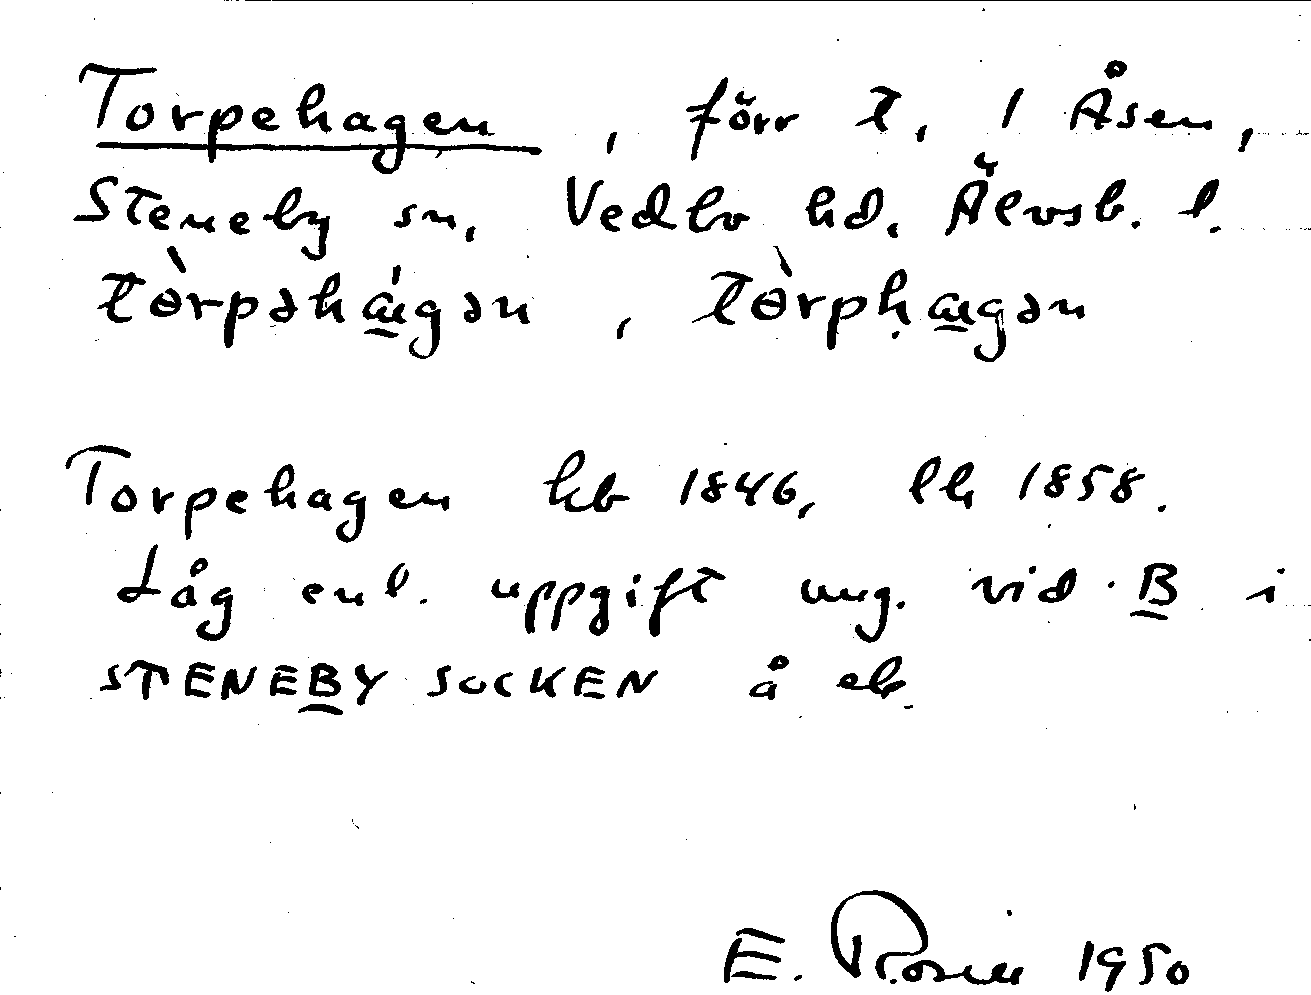 Torpehagen, förr t. / Åsen,
Steneby sn, Vedbo hd. Älvsb. l.
tòrpəhágən, tòrphagən
Torpehagen kb 1846, lh 1858.
Låg enl. uppgift ung. vid B i
STENEBY SOCKEN å eb.
E. Rosén 1950